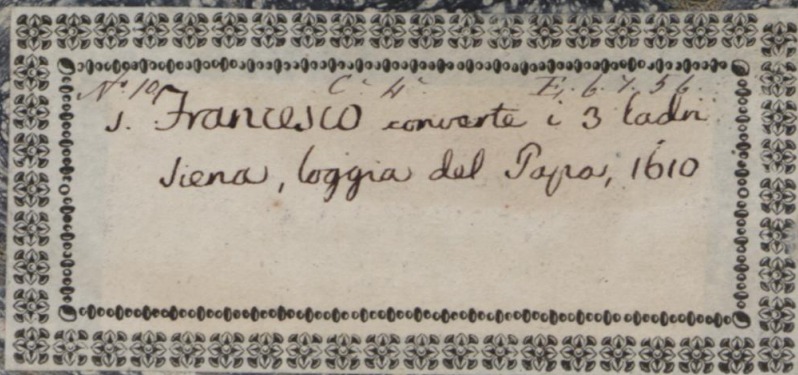 N.º 10 C. 4. F. 6. 7. 5 6.
S. Francesco converte i 3 ladri
Siena, loggia del Papa, 1610